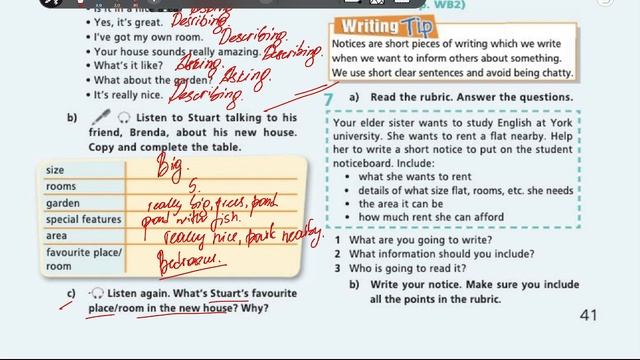 • Yes, it's great. Desribing.
• I've got my own room. Describing.
• Your house sounds really amazing. Describing.
• What's it like? Asking.
• What about the garden? Asking.
• It's really nice. Describing.
b) Listen to Stuart talking to his
friend, Brenda, about his new house.
Copy and complete the table.
size Big.
rooms 5.
garden really big, trees, pond
special features pond with fish.
area really nice, park nearby.
favourite place/
room Bedroom.
c) Listen again. What's Stuart's favourite
place/room in the new house? Why?
p. WB2)
Writing Tip
Notices are short pieces of writing which we write
when we want to inform others about something.
We use short clear sentences and avoid being chatty.
7 a) Read the rubric. Answer the questions.
Your elder sister wants to study English at York
university. She wants to rent a flat nearby. Help
her to write a short notice to put on the student
noticeboard. Include:
• what she wants to rent
• details of what size flat, rooms, etc. she needs
• the area it can be
• how much rent she can afford
1 What are you going to write?
2 What information should you include?
3 Who is going to read it?
b) Write your notice. Make sure you include
all the points in the rubric.
41